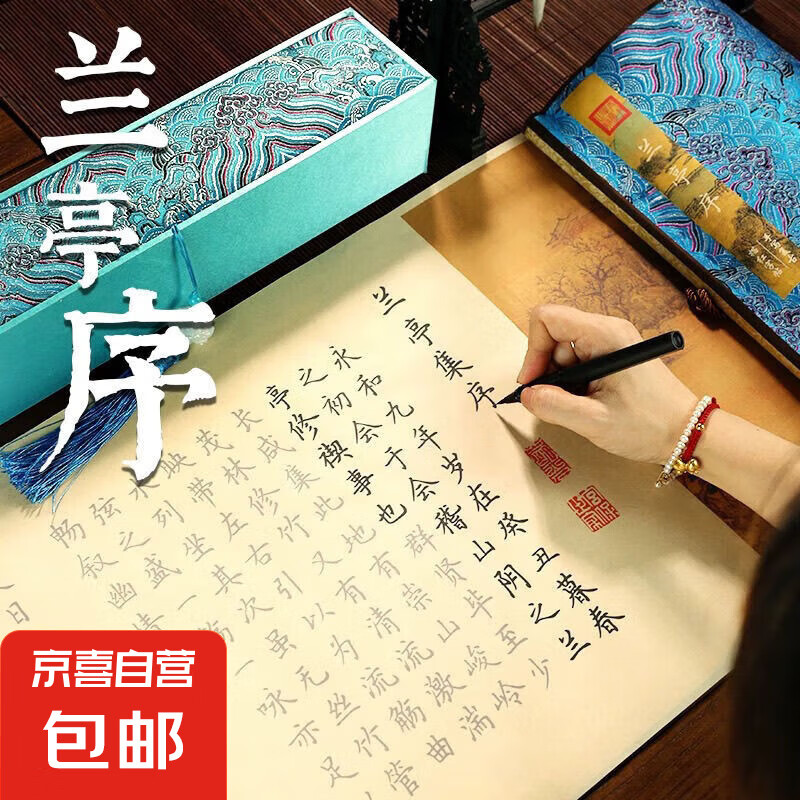 兰亭序
兰亭序
兰亭集序
永和九年岁在癸丑暮春
之初会于会稽山阴之兰
亭修禊事也群贤毕至少
长咸集此地有崇山峻岭
茂林修竹又有清流激湍
映带左右引以为流觞曲
水列坐其次虽无丝竹管
弦之盛一觞一咏亦足以
畅叙幽情
日
京喜自营
包邮